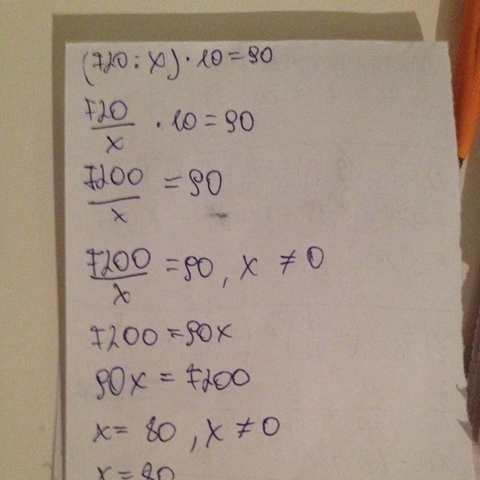 (720 : x) · 10 = 90
720/x · 10 = 90
7200/x = 90
7200/x = 90, x ≠ 0
7200 = 90x
90x = 7200
x = 80, x ≠ 0
x = 80